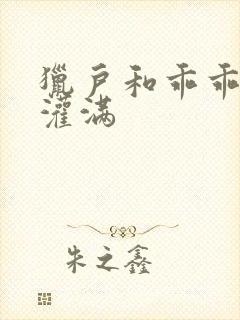 獵户和乖乖
灌满
朱之鑫